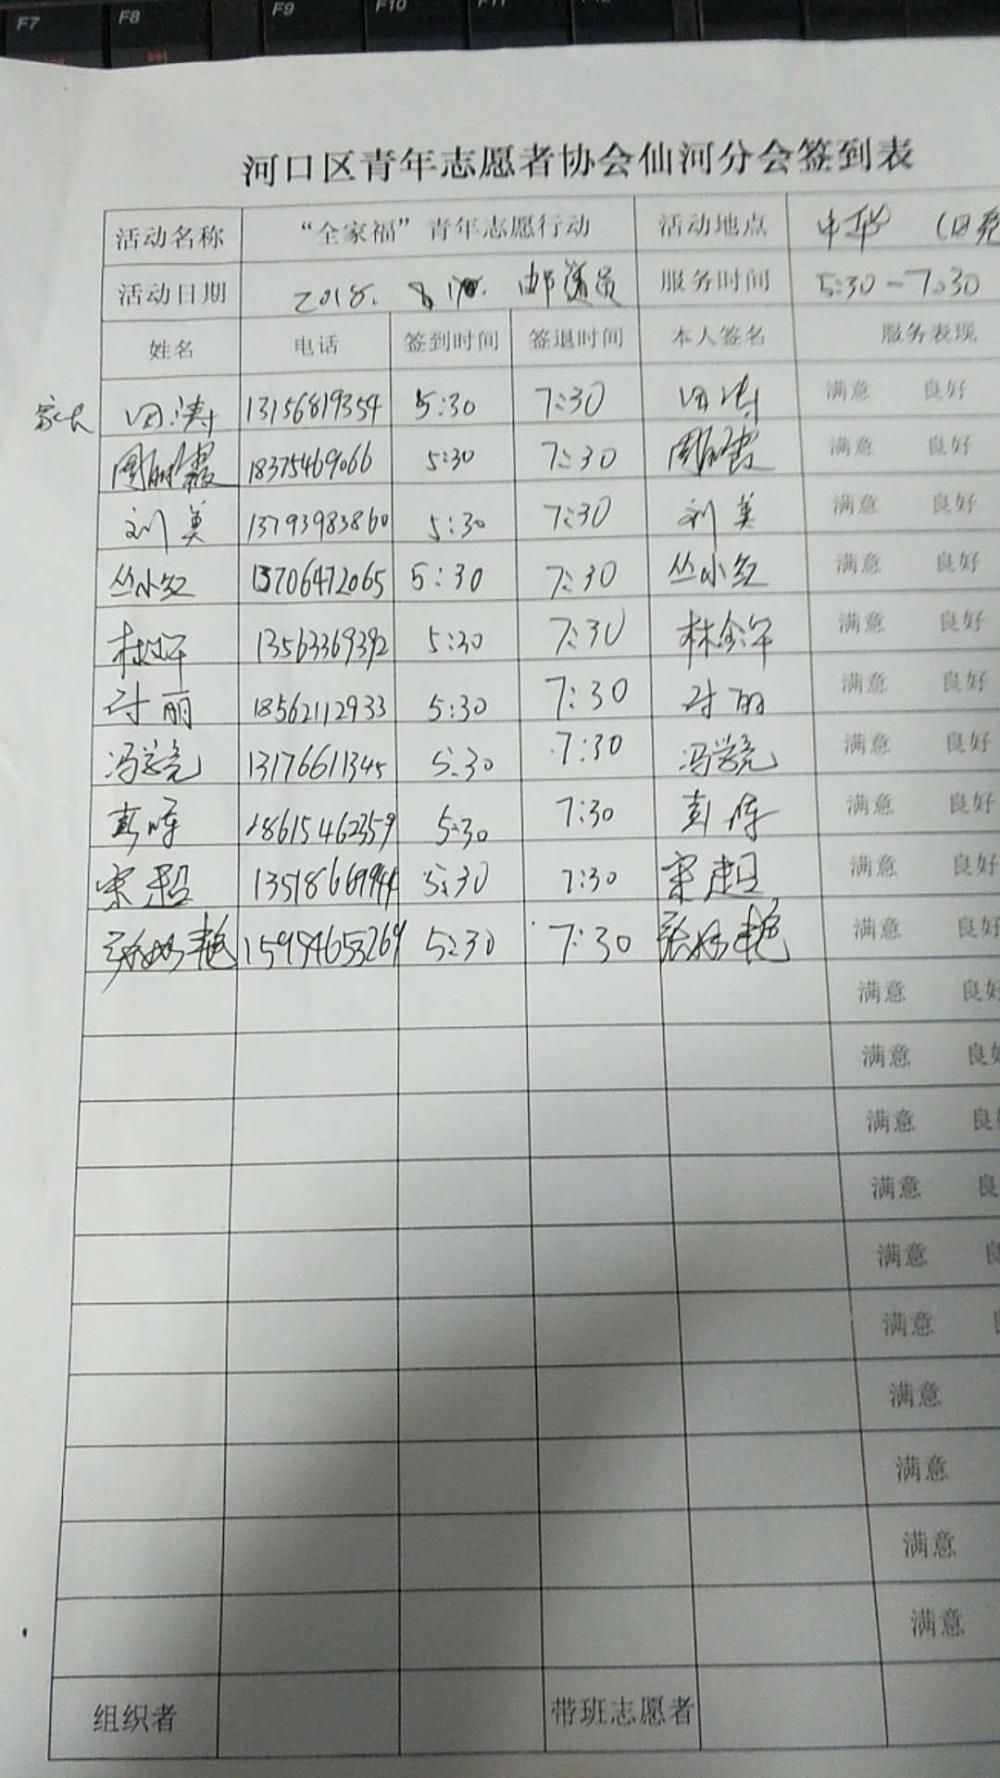 F7 F8 F9 F10 F11
河口区青年志愿者协会仙河分会签到表
活动名称 “全家福”青年志愿行动 活动地点 中华
活动日期 2018. 8.18. 邮递员 服务时间 5:30-7:30
姓名 电话 签到时间 签退时间 本人签名 服务表现
家长 田涛 13156819354 5:30 7:30 田涛 满意 良好
周丽霞 18375469066 5:30 7:30 周丽霞 满意 良好
刘美 13793983860 5:30 7:30 刘美 满意 良好
丛小红 13706472065 5:30 7:30 丛小红 满意 良好
13563369392 5:30 7:30 满意 良好
付丽 18562112933 5:30 7:30 付丽 满意 良好
冯学亮 13176611345 5:30 7:30 冯学亮 满意 良好
18615462359 5:30 7:30 满意 良好
宋超 5:30 7:30 宋超 满意 良好
15954653269 5:30 7:30 满意 良好
满意 良好
满意 良好
满意 良好
满意 良
满意
满意
满意
满意
满意
满意
组织者 带班志愿者